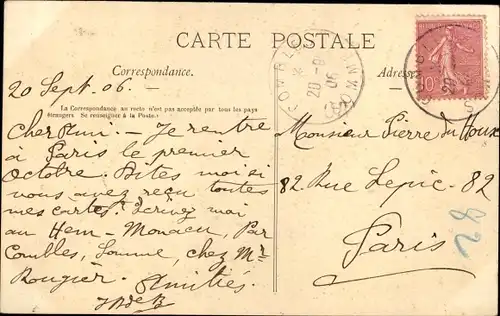 CARTE POSTALE
Correspondance.
Adresse
20 Sept 06. -
La Correspondance au recto n'est pas acceptée par tous les pays
étrangers Se renseigner à la Poste.)
Cher - Je rentre
à Paris le premier
Octobre. Dites moi si
vous avez reçu toutes
mes cartes. Ecrivez moi
au Hem - Monacu, Par
Combles, Somme, chez Mr
Rougier. Amitiés.
COMBLES
20 -9
06
10
Monsieur Pierre du
82. Rue Lepic - 82
Paris
28